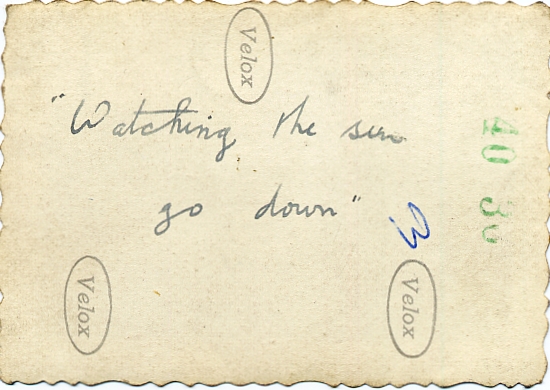 Velox
"Watching the sun
go down"
3
Velox
Velox
40 36